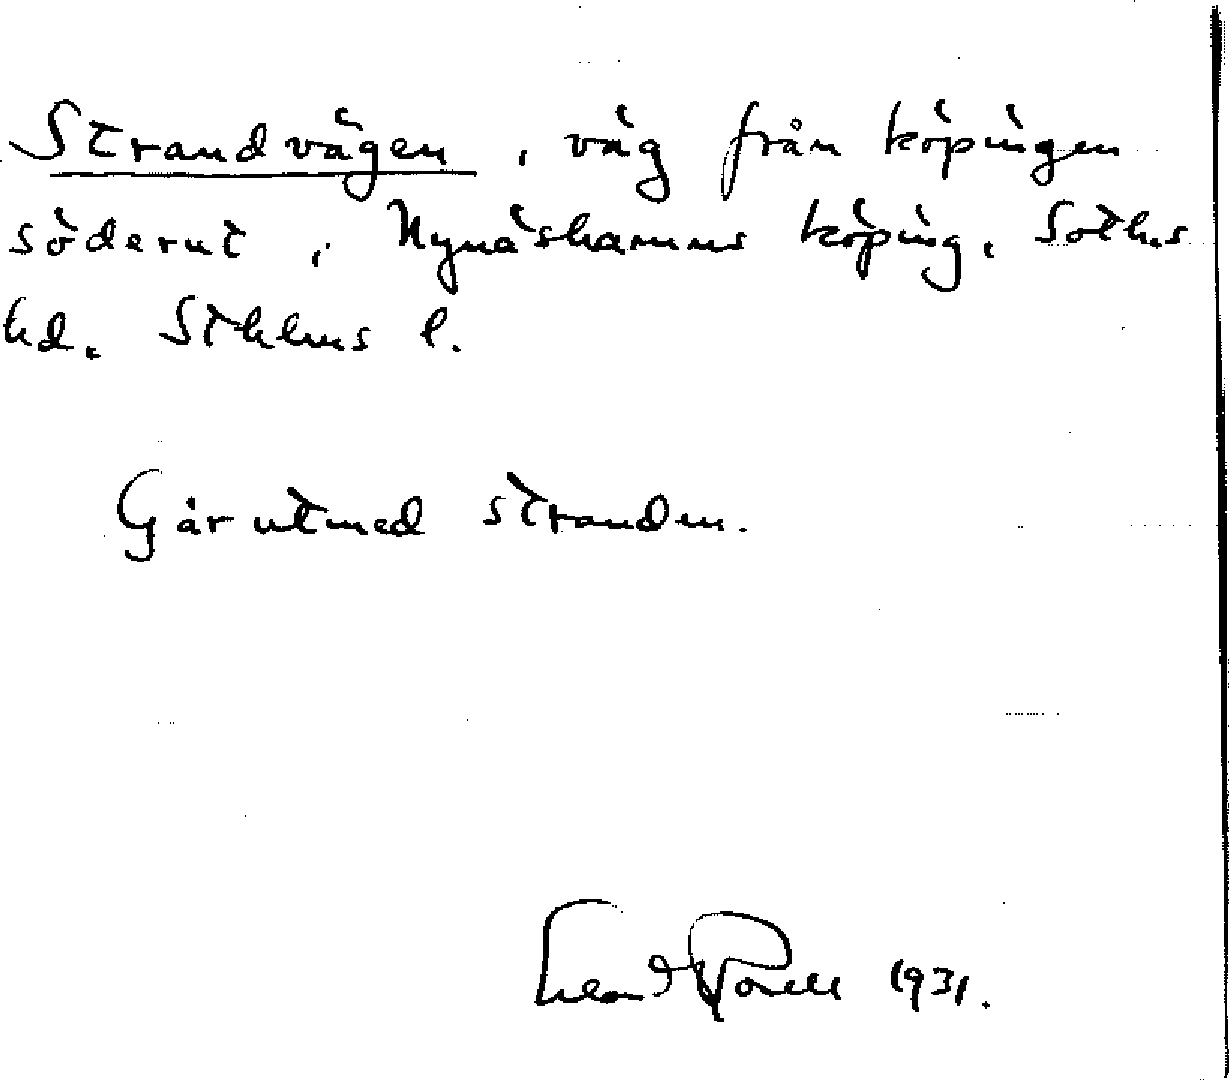 Strandvägen, väg från köpingen
söderut, Nynäshamns köping, Sothms
hd. Sthlms l.
Går utmed stranden.
1931.